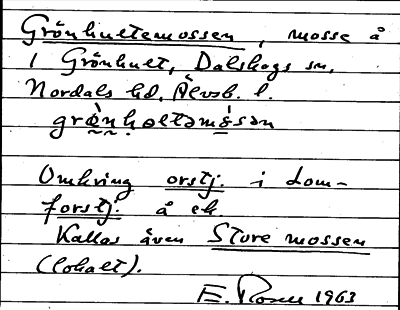 Grönhultemossen, mosse å
1 Grönhult, Dalskogs sn,
Nordals hd, Älvsb. l.
Omkring orstj. i dom-
forstj. å ek.
Kallas även Store mossen
(lokalt).
E. Rosell 1963